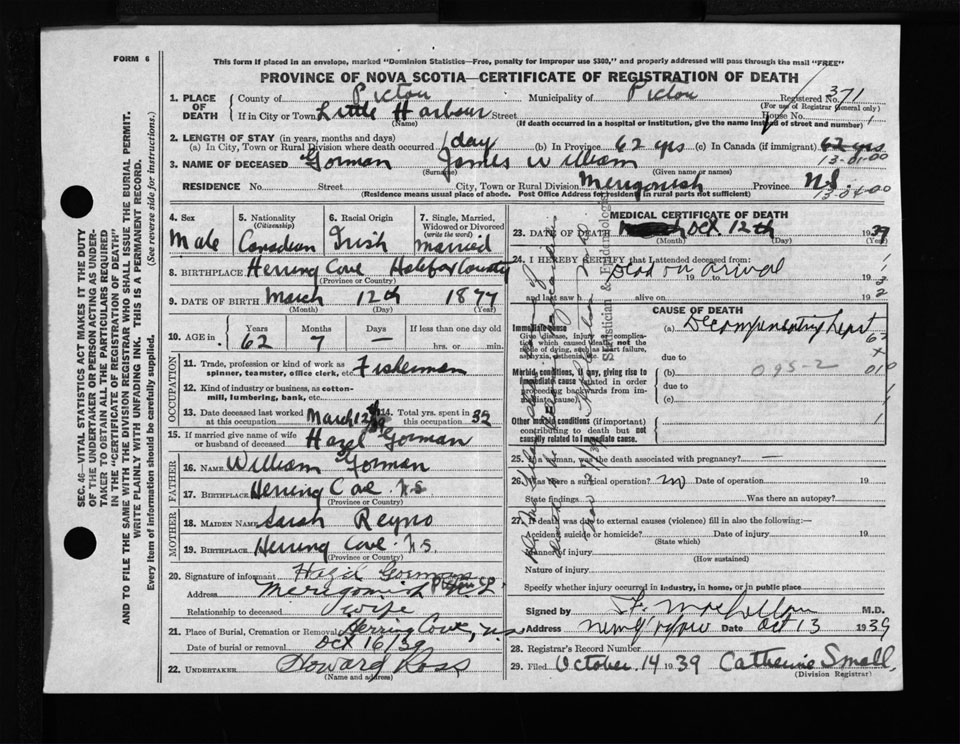 FORM 6
This form if placed in an envelope, marked "Dominion Statistics—Free, penalty for improper use $300," and properly addressed will pass through the mail "FREE"
PROVINCE OF NOVA SCOTIA—CERTIFICATE OF REGISTRATION OF DEATH
1. PLACE OF DEATH
County of Pictou Municipality of Pictou Registered No. 371
(For use of Registrar General only)
If in City or Town Little Harbour Street House No.
(Name) (If death occurred in a hospital or institution, give the name instead of street and number)
2. LENGTH OF STAY (in years, months and days)
(a) In City, Town or Rural Division where death occurred 1 day (b) In Province 62 yrs (c) In Canada (if immigrant) 62 yrs
13-01-00
3. NAME OF DECEASED Gorman James William
(Surname) (Given name or names)
RESIDENCE No. Street City, Town or Rural Division Merigonish Province N.S.
(Residence means usual place of abode. Post Office Address for residents in rural parts not sufficient)
13-04-00
4. Sex Male
5. Nationality (Citizenship) Canadian
6. Racial Origin Irish
7. Single, Married, Widowed or Divorced (write the word) Married
8. BIRTHPLACE Herring Cove Halifax County
(Province or Country)
9. DATE OF BIRTH March 12th 1877
(Month) (Day) (Year)
10. AGE in Years 62 Months 7 Days — If less than one day old
hrs. or min.
OCCUPATION
11. Trade, profession or kind of work as spinner, teamster, office clerk, etc. Fisherman
12. Kind of industry or business, as cotton-mill, lumbering, bank, etc.
13. Date deceased last worked at this occupation March 12 /39 14. Total yrs. spent in this occupation 32
15. If married give name of wife or husband of deceased Hazel Gorman
FATHER
16. NAME William Gorman
17. BIRTHPLACE Herring Cove N.S.
MOTHER
18. MAIDEN NAME Sarah Reyno
19. BIRTHPLACE Herring Cove N.S.
(Province or Country)
20. Signature of informant Hazel Gorman
Address Merigomish Pictou Co N.S.
Relationship to deceased wife
21. Place of Burial, Cremation or Removal Herring Cove, N.S.
Date of burial or removal Oct 16/39
22. UNDERTAKER Howard Ross
(Name and address)
MEDICAL CERTIFICATE OF DEATH
23. DATE OF DEATH Oct 12th 1939
(Month) (Day) (Year)
24. I HEREBY CERTIFY that I attended deceased from:
Dead on arival
19 to 19
and last saw h alive on 19
CAUSE OF DEATH
Immediate cause
Give disease, injury or complication which caused death, not the mode of dying, such as heart failure, asphyxia, asthenia, etc.
(a) Decompensatry heart
due to
Morbid conditions, if any, giving rise to immediate cause (stated in order proceeding backwards from immediate cause).
(b) 095-2
due to
(c)
Other morbid conditions (if important) contributing to death but not causally related to immediate cause
25. If a woman, was the death associated with pregnancy? —
26. Was there a surgical operation? no Date of operation 19
State findings Was there an autopsy?
27. If death was due to external causes (violence) fill in also the following:
Accident, suicide or homicide? Date of injury 19
(State which)
Manner of injury
(How sustained)
Nature of injury
Specify whether injury occurred in industry, in home, or in public place
Signed by M.D.
Address New Glasgow Date Oct 13 1939
28. Registrar's Record Number
29. Filed October 14 1939 Catherine Small
(Division Registrar)
Statistician & Epidemiologist
SEC. 46—VITAL STATISTICS ACT MAKES IT THE DUTY
OF THE UNDERTAKER OR PERSON ACTING AS UNDER-
TAKER TO OBTAIN ALL THE PARTICULARS REQUIRED
IN THE "CERTIFICATE OF REGISTRATION OF DEATH"
AND TO FILE THE SAME WITH THE DIVISION REGISTRAR WHO SHALL ISSUE THE BURIAL PERMIT.
WRITE PLAINLY WITH UNFADING INK. THIS IS A PERMANENT RECORD.
Every item of information should be carefully supplied. (See reverse side for instructions.)